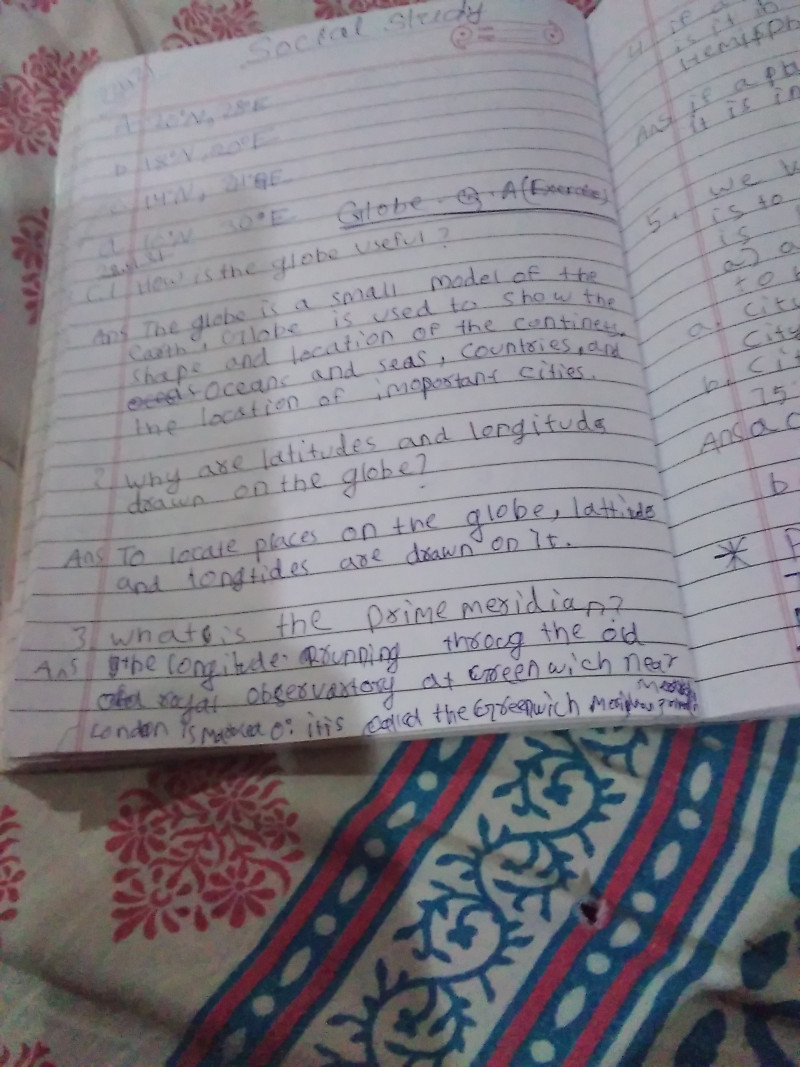 Social Study
20°N, 28°E
b. 18°N, 20°E
14°N, 21°E
d. 10°N 30°E
Globe Q. A (Exercise)
C.1 How is the globe useful?
Ans The globe is a small model of the
Earth, Globe is used to show the
shape and location of the continets.
Oceans and seas, countries, and
the location of imoportant cities.
2 Why are latitudes and longituds
drawn on the globe?
Ans To locate places on the globe, lattitudes
and longtides are drawn on it.
3. whats is the prime meridian?
Ans the longitude running throug the old
royal observartory at Greenwich near
London is marked 0° it is called the Greenwich
4. if a
is it
Hemisph
Ans if a pla
it is in
5. we
is to
is
a) a
to
a. city
city
b. cit
75
Ans a c
b